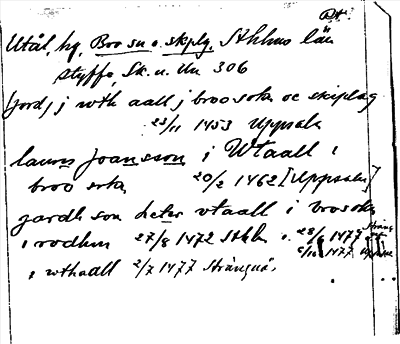 Utål, hg, Bro sn o. skplg Sthlms län
Styffe Sk. u. Un 306
Jord j wth aall j broo sokn oc skiplag
23/11 1453 Uppsala
lauris joansson i Wtaall i
broo sokn 20/2 1462 [Uppsala]
gardh som heter vtaall i bro sokn
i rodhen 27/8 1472 Sthlm
i wthaall 2/7 1477 Strängnäs